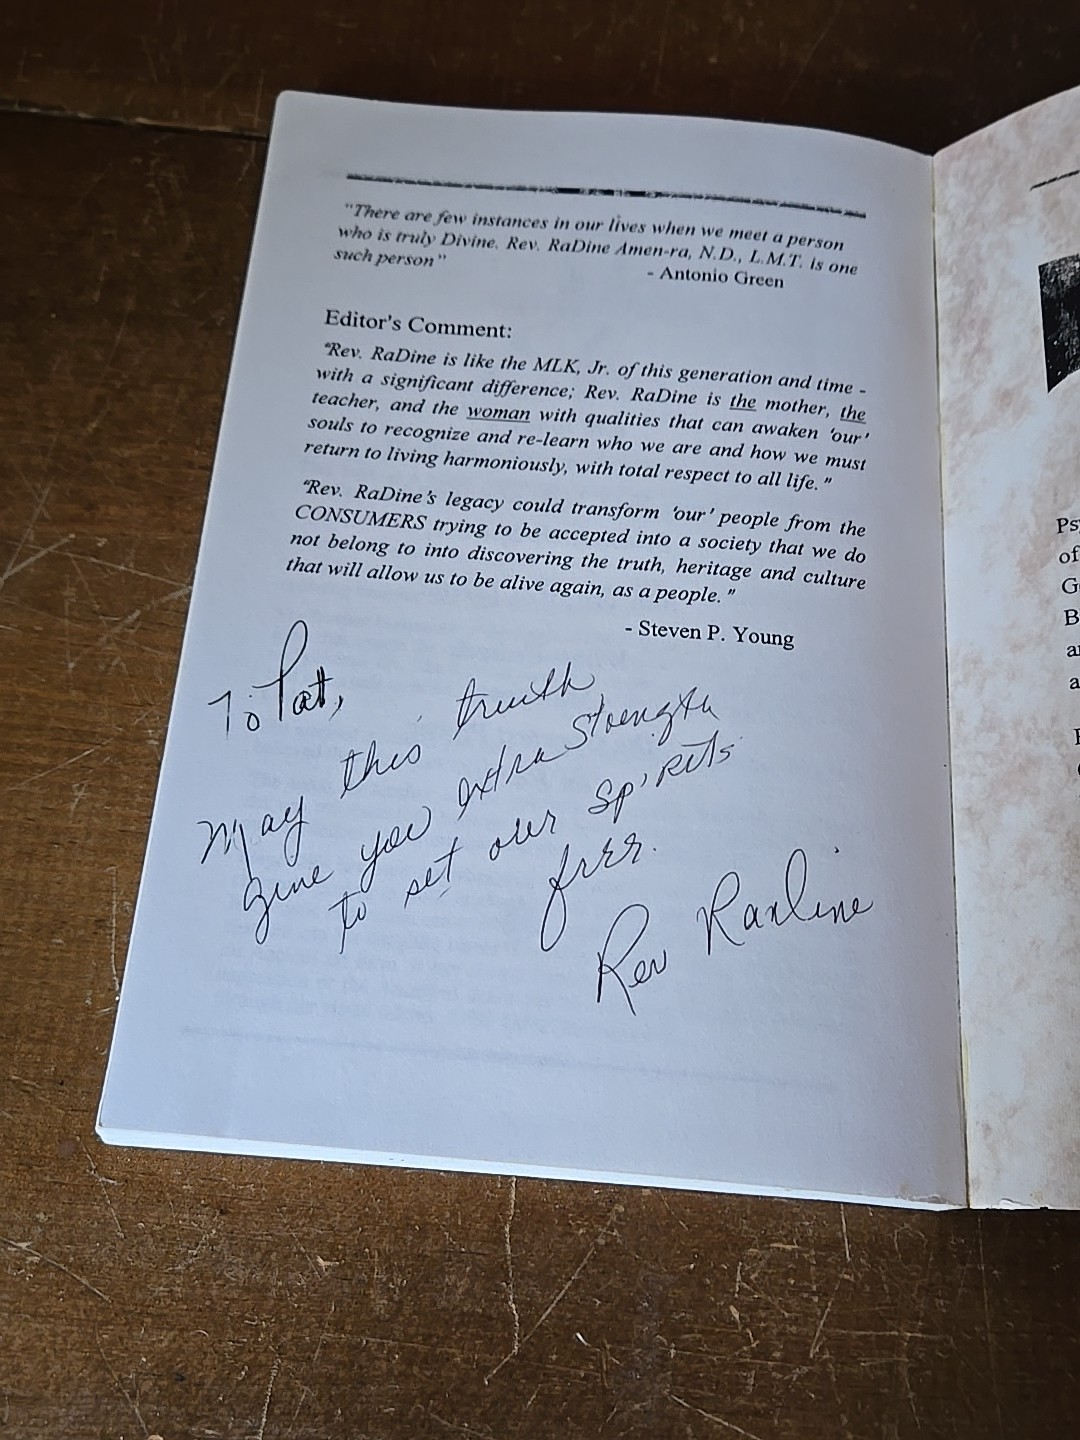 "There are few instances in our lives when we meet a person
who is truly Divine. Rev. RaDine Amen-ra, N.D., L.M.T. is one
such person"
- Antonio Green
Editor's Comment:
"Rev. RaDine is like the MLK, Jr. of this generation and time -
with a significant difference; Rev. RaDine is the mother, the
teacher, and the woman with qualities that can awaken 'our'
souls to recognize and re-learn who we are and how we must
return to living harmoniously, with total respect to all life."
"Rev. RaDine's legacy could transform 'our' people from the
CONSUMERS trying to be accepted into a society that we do
not belong to into discovering the truth, heritage and culture
that will allow us to be alive again, as a people."
- Steven P. Young
To Pat,
May this truth
give you extra strength
to set our spirits
free.
Rev Radine
of